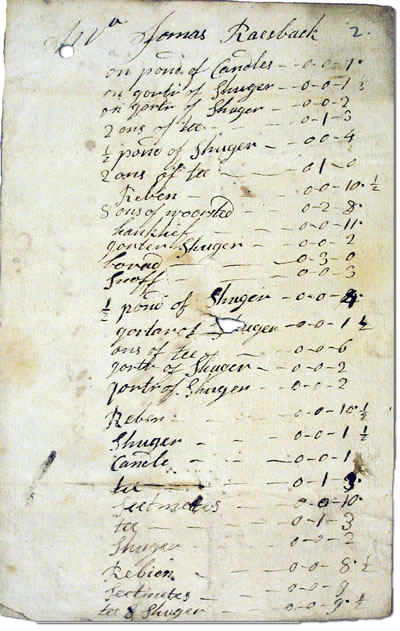 Jomas Raesback 2.
on pond of Candles - 0-0-7.
on gortr of Shuger - 0-0-1 ½
on gortr of Shuger - 0-0-2
2 ons of tee - 0-1-3
½ pond of Shuger - 0 0-4
2 ons of tee - 0 1-0
Reben - 0-0-10. ½
8 ons of woorsted - 0-2-8.
hankief - 0-0-11.
gorter Shuger - 0-0-2
- 0-3-0
Snoff - 0-0-3
½ pond of Shuger - 0-0-4.
of Shuger - 0-0-1 ½
ons of tee - 0-0-6
gortr of Shuger - 0-0-2
gortr of Shuger - 0-0-2
Reben - 0-0-10. ½
Shuger - 0-0-1 ½
Candle - 0-0-1
tee - 0-1-3.
- 0-0-10.
tee - 0-1-3
Shuger - 0-0-2
Rebien - 0-0-8. ½
- 0-0-9
tee & Shuger - 0-0-9. ½